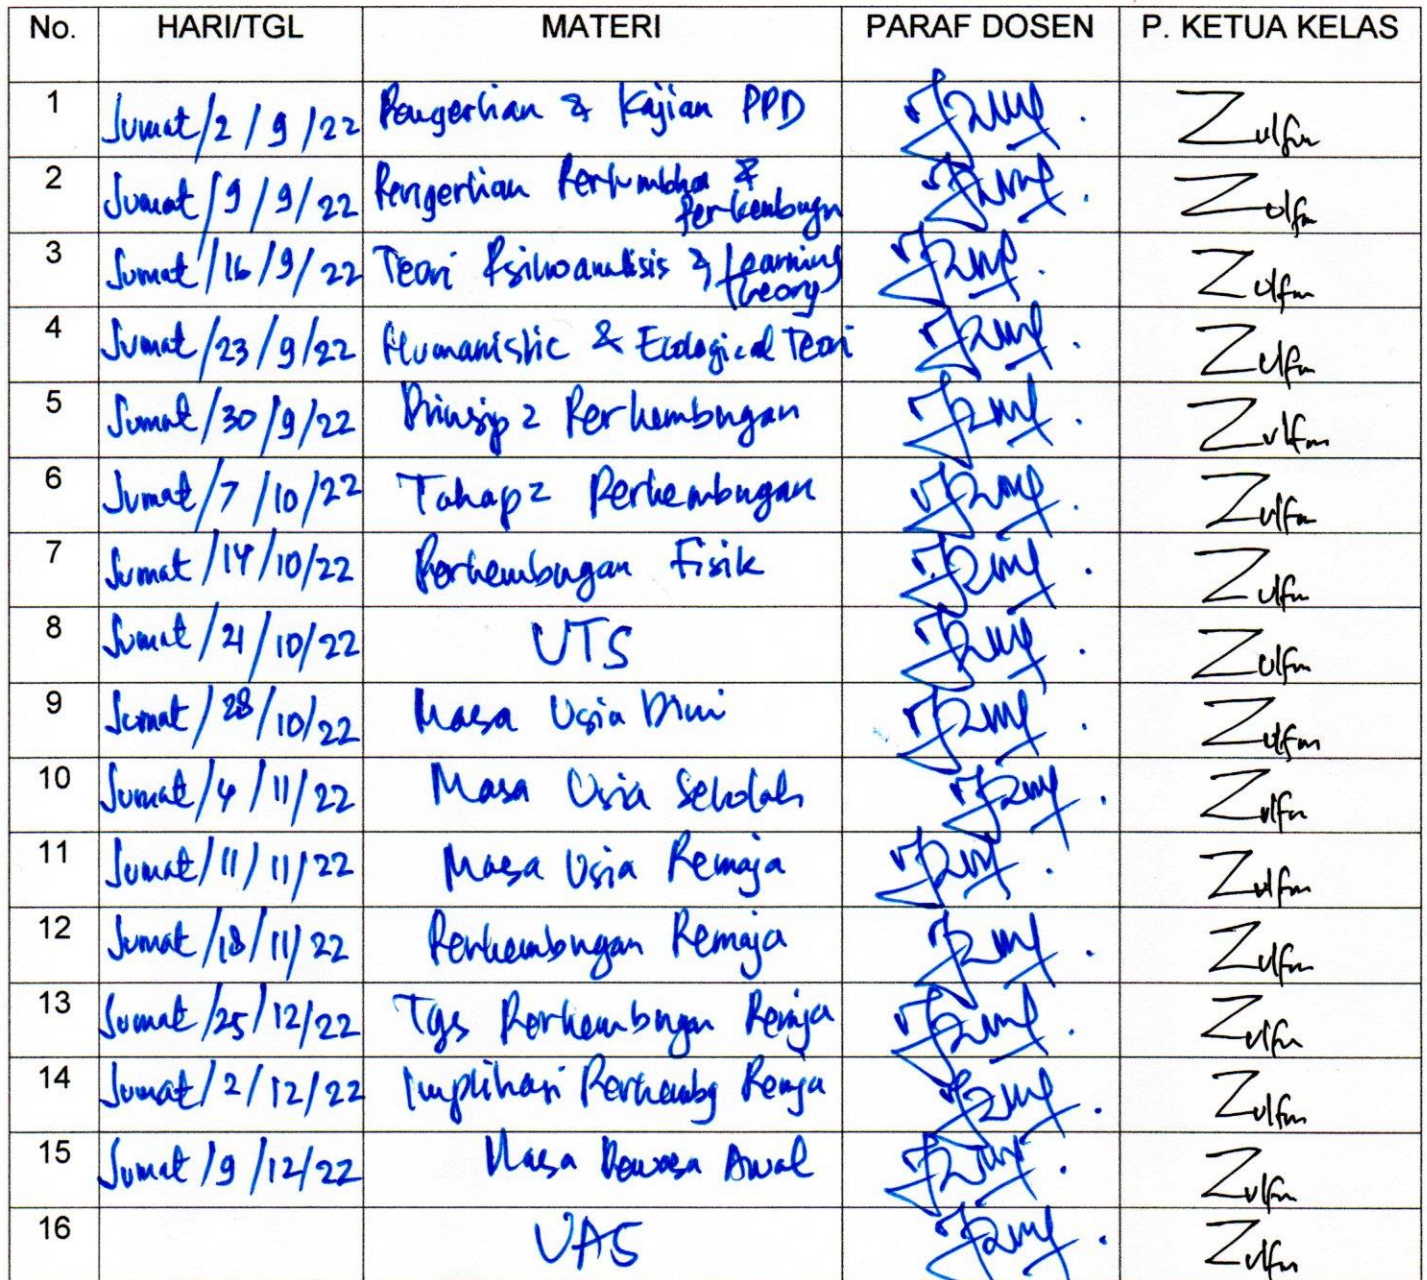 No. HARI/TGL MATERI PARAF DOSEN P. KETUA KELAS
1 Jumat/2/9/22 Pengertian & Kajian PPD Zulfm
2 Jumat/9/9/22 Pengertian Pertumbha & Perkembngn Zulfm
3 Jumat/16/9/22 Teori Psikoanalisis & Learning theory Zulfm
4 Jumat/23/9/22 Humanistic & Ecological Teori Zulfm
5 Jumat/30/9/22 Prinsip2 Perkembngan Zulfm
6 Jumat/7/10/22 Tahap2 Perkembngan Zulfm
7 Jumat/14/10/22 Perkembngan Fisik Zulfm
8 Jumat/21/10/22 UTS Zulfm
9 Jumat/28/10/22 Masa Usia Dini Zulfm
10 Jumat/4/11/22 Masa Usia Sekolah Zulfm
11 Jumat/11/11/22 Masa Usia Remaja Zulfm
12 Jumat/18/11/22 Perkembngan Remaja Zulfm
13 Jumat/25/12/22 Tgs Perkembngan Remja Zulfm
14 Jumat/2/12/22 Implikasi Perkembg Remja Zulfm
15 Jumat/9/12/22 Masa Dewasa Awal Zulfm
16 UAS Zulfm